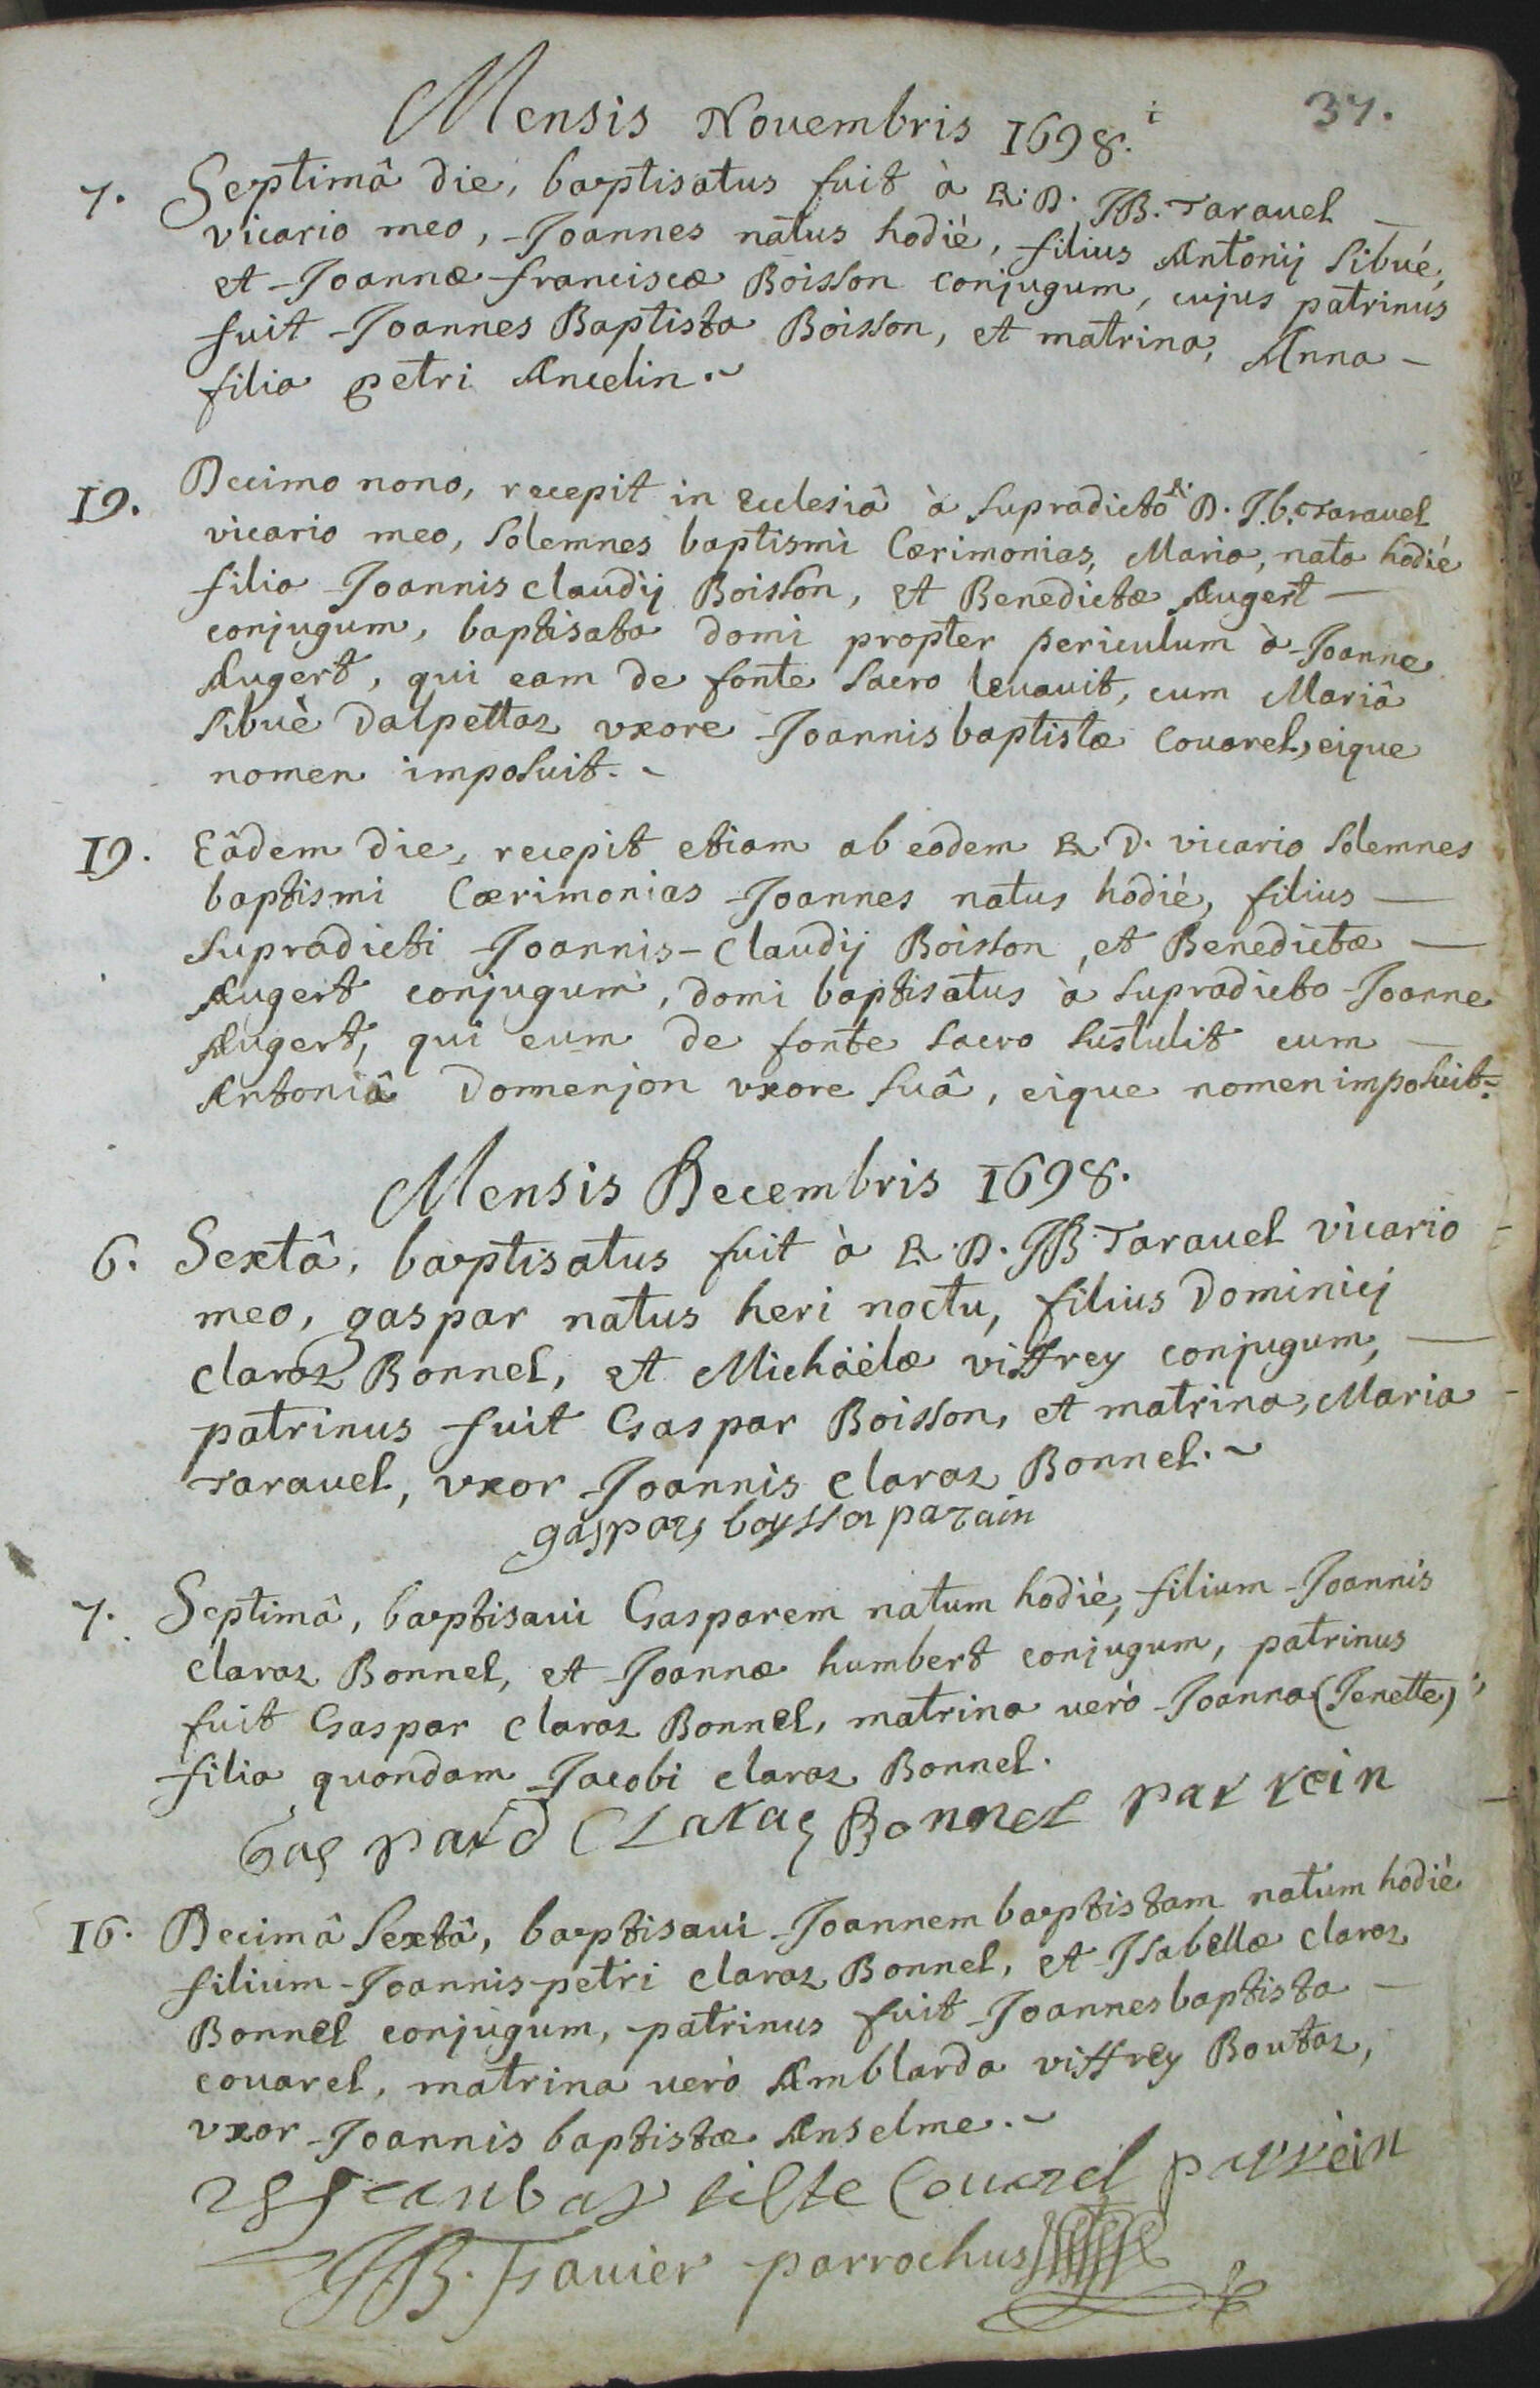 Mensis Novembris 1698. 37.
7. Septimâ die, baptisatus fuit à R. D. JB. Taravel
vicario meo, Joannes natus hodiè, filius Antonij Sibué,
et Joannæ franciscæ Boisson conjugum, cujus patrinus
fuit Joannes Baptista Boisson, et matrina, Anna
filia petri Ancelin.
19. Decimo nono, recepit in Ecclesiâ à supradicto R. D. J.b. Taravel
vicario meo, solemnes baptismi Cærimonias, Maria, nata hodiè
filia Joannis claudij Boisson, et Benedictæ Augert
conjugum, baptisata domi propter periculum à Joanne
Augert, qui eam de fonte sacro levauit, cum Mariâ
sibuè dalpettaz vxore Joannis baptistæ Couarel, eique
nomen imposuit.
19. Eâdem die, recepit etiam ab eodem R D. vicario solemnes
baptismi Cærimonias Joannes natus hodiè, filius
supradicti Joannis-Claudij Boisson, et Benedictæ
Augert conjugum, domi baptisatus à supradicto Joanne
Augert, qui eum de fonte sacro sustulit cum
Antoniâ domenjon vxore suâ, eique nomen imposuit.
Mensis Decembris 1698.
6. Sextâ, baptisatus fuit à R. D. JB. Tarauel vicario
meo, gaspar natus heri noctu, filius dominicj
claraz Bonnel, et Michäelæ viffrey conjugum,
patrinus fuit Gaspar Boisson, et matrina, Maria
Tarauel, vxor Joannis claraz Bonnel.
gaspars boysson parain
7. Septimâ, baptisaui Gasparem natum hodiè, filium Joannis
claraz Bonnel, et Joannæ humbert conjugum, patrinus
fuit Gaspar claraz Bonnel, matrina uerò Joanna (Jenette)
filia quondam Jacobi claraz Bonnel.
Gas pard CLaraz Bonnel par rein
16. Decimâ Sextâ, baptisaui Joannem baptistam natum hodiè
filium Joannis-petri claraz Bonnel, et Isabellæ claraz
Bonnel conjugum, patrinus fuit Joannes baptista
couarel, matrina uerò Amblarda viffrey Boutaz,
vxor Joannis baptistæ Anselme.
Jean bap tilte Couarel parrein
JB. Favier parrochus